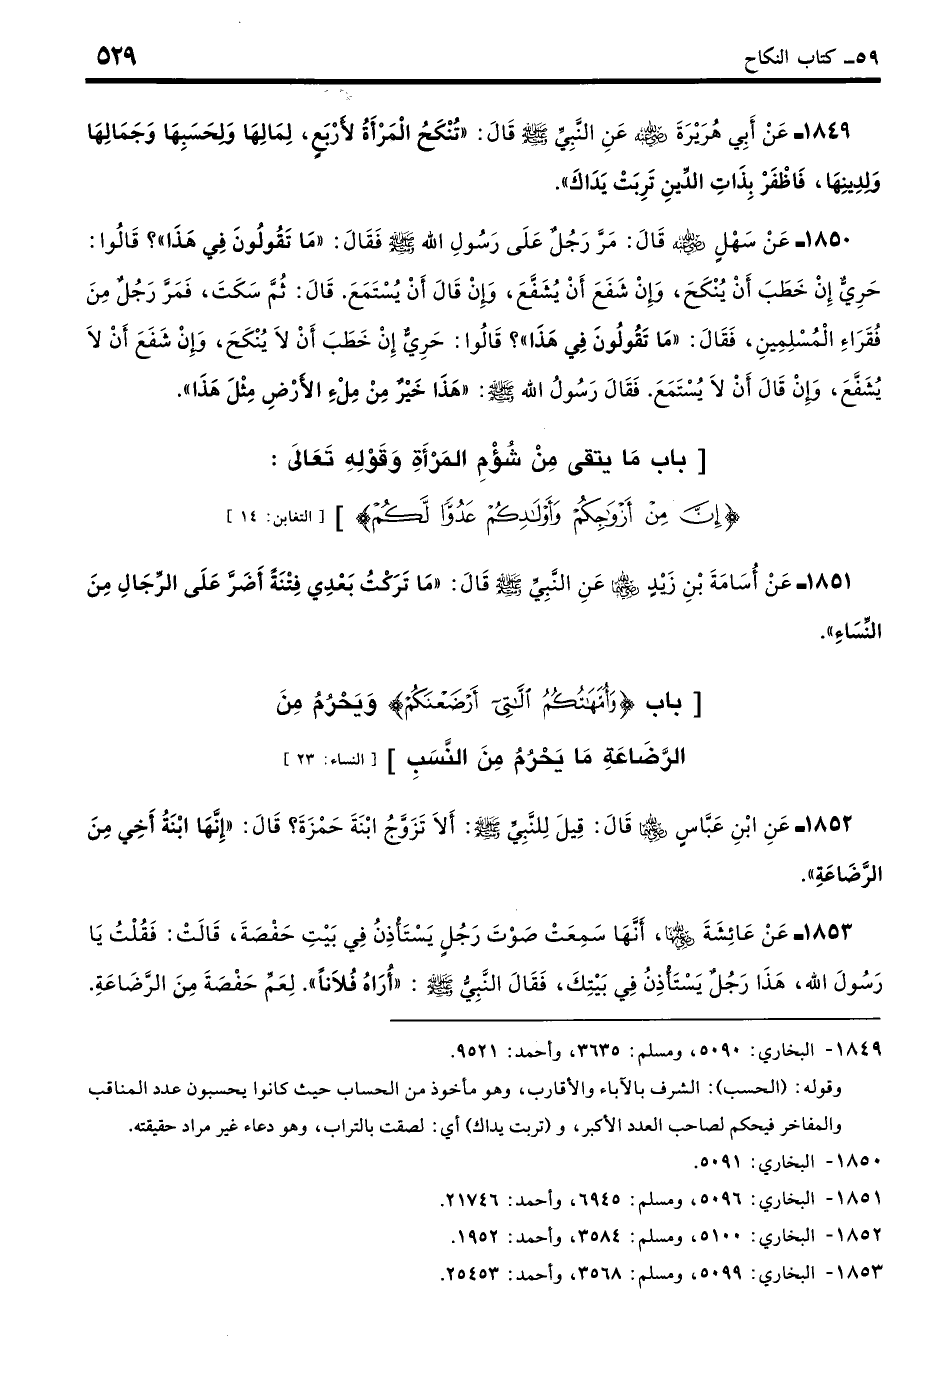 ٥٩ـ كتاب النكاح
٥٢٩
١٨٤٩ـ عَنْ أَبِي هُرَيْرَةَ ﵁ عَنِ النَّبِيِّ ﷺ قَالَ: «تُنْكَحُ الْمَرْأَةُ لأَرْبَعٍ، لِمَالِهَا وَلِحَسَبِهَا وَجَمَالِهَا
وَلِدِينِهَا، فَاظْفَرْ بِذَاتِ الدِّينِ تَرِبَتْ يَدَاكَ».
١٨٥٠ـ عَنْ سَهْلٍ ﵁ قَالَ: مَرَّ رَجُلٌ عَلَى رَسُولِ الله ﷺ فَقَالَ: «مَا تَقُولُونَ فِي هَذَا»؟ قَالُوا:
حَرِيٌّ إِنْ خَطَبَ أَنْ يُنْكَحَ، وَإِنْ شَفَعَ أَنْ يُشَفَّعَ، وَإِنْ قَالَ أَنْ يُسْتَمَعَ. قَالَ: ثُمَّ سَكَتَ، فَمَرَّ رَجُلٌ مِنَ
فُقَرَاءِ الْمُسْلِمِينِ، فَقَالَ: «مَا تَقُولُونَ فِي هَذَا»؟ قَالُوا: حَرِيٌّ إِنْ خَطَبَ أَنْ لاَ يُنْكَحَ، وَإِنْ شَفَعَ أَنْ لاَ
يُشَفَّعَ، وَإِنْ قَالَ أَنْ لاَ يُسْتَمَعَ. فَقَالَ رَسُولُ الله ﷺ: «هَذَا خَيْرٌ مِنْ مِلْءِ الأَرْضِ مِثْلَ هَذَا».
[ باب مَا يتقى مِنْ شُؤْمِ المَرْأَةِ وَقَوْلِهِ تَعَالَى :
﴿إِنَّ مِنْ أَزْوَٰجِكُمْ وَأَوْلَـٰدِكُمْ عَدُوًّا لَّكُمْ﴾ ] [ التغابن: ١٤ ]
١٨٥١ـ عَنْ أُسَامَةَ بْنِ زَيْدٍ ﵄ عَنِ النَّبِيِّ ﷺ قَالَ: «مَا تَرَكْتُ بَعْدِي فِتْنَةً أَضَرَّ عَلَى الرِّجَالِ مِنَ
النِّسَاءِ».
[ باب ﴿وَأُمَّهَـٰتُكُمُ ٱلَّـٰتِىٓ أَرْضَعْنَكُمْ﴾ وَيَحْرُمُ مِنَ
الرَّضَاعَةِ مَا يَحْرُمُ مِنَ النَّسَبِ ] [ النساء: ٢٣ ]
١٨٥٢ـ عَنِ ابْنِ عَبَّاسٍ ﵄ قَالَ: قِيلَ لِلنَّبِيِّ ﷺ: أَلاَ تَزَوَّجُ ابْنَةَ حَمْزَةَ؟ قَالَ: «إِنَّهَا ابْنَةُ أَخِي مِنَ
الرَّضَاعَةِ».
١٨٥٣ـ عَنْ عَائِشَةَ ﵂، أَنَّهَا سَمِعَتْ صَوْتَ رَجُلٍ يَسْتَأْذِنُ فِي بَيْتِ حَفْصَةَ، قَالَتْ: فَقُلْتُ يَا
رَسُولَ الله، هَذَا رَجُلٌ يَسْتَأْذِنُ فِي بَيْتِكَ، فَقَالَ النَّبِيُّ ﷺ : «أُرَاهُ فُلاَناً». لِعَمِّ حَفْصَةَ مِنَ الرَّضَاعَةِ.
١٨٤٩- البخاري: ٥٠٩٠، ومسلم: ٣٦٣٥، وأحمد: ٩٥٢١.
وقوله: (الحسب): الشرف بالآباء والأقارب، وهو مأخوذ من الحساب حيث كانوا يحسبون عدد المناقب
والمفاخر فيحكم لصاحب العدد الأكبر، و (تربت يداك) أي: لصقت بالتراب، وهو دعاء غير مراد حقيقته.
١٨٥٠- البخاري: ٥٠٩١.
١٨٥١- البخاري: ٥٠٩٦، ومسلم: ٦٩٤٥، وأحمد: ٢١٧٤٦.
١٨٥٢- البخاري: ٥١٠٠، ومسلم: ٣٥٨٤، وأحمد: ١٩٥٢.
١٨٥٣- البخاري: ٥٠٩٩، ومسلم: ٣٥٦٨، وأحمد: ٢٥٤٥٣.